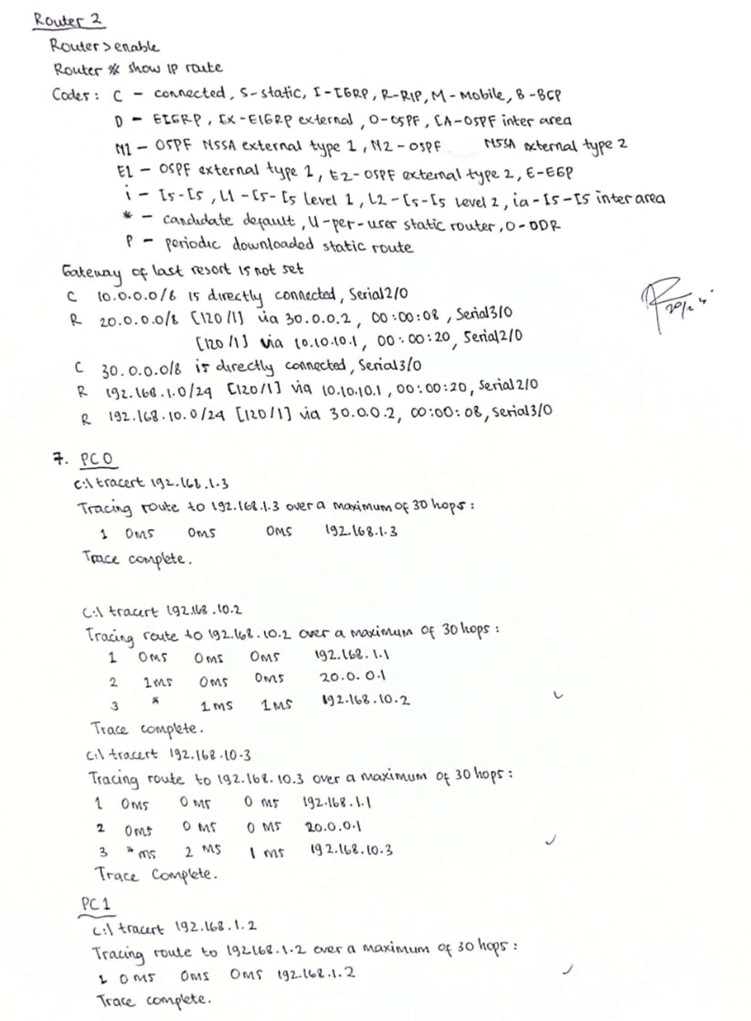 Router 2
Router>enable
Router # show IP route
Codes: C - connected, S-static, I-IGRP, R-RIP, M-Mobile, B-BGP
D - EIGRP, EX-EIGRP external, O-OSPF, IA-OSPF inter area
N1 - OSPF NSSA external type 1, N2-OSPF NSSA external type 2
E1 - OSPF external type 1, E2-OSPF external type 2, E-EGP
i - IS-IS, L1-IS-IS level 1, L2-IS-IS level 2, ia-IS-IS inter area
* - candidate default, U-per-user static router, O-ODR
P - periodic downloaded static route
Gateway of last resort is not set
C 10.0.0.0/8 is directly connected, Serial2/0
R 20.0.0.0/8 [120/1] via 30.0.0.2, 00:00:08, Serial3/0
[120/1] via 10.10.10.1, 00:00:20, Serial2/0
C 30.0.0.0/8 is directly connected, Serial3/0
R 192.168.1.0/24 [120/1] via 10.10.10.1, 00:00:20, Serial2/0
R 192.168.10.0/24 [120/1] via 30.0.0.2, 00:00:08, Serial3/0
7. PC0
C:\ tracert 192.168.1.3
Tracing route to 192.168.1.3 over a maximum of 30 hops:
1 0ms 0ms 0ms 192.168.1.3
Trace complete.
C:\ tracert 192.168.10.2
Tracing route to 192.168.10.2 over a maximum of 30 hops:
1 0ms 0ms 0ms 192.168.1.1
2 1ms 0ms 0ms 20.0.0.1
3 * 1ms 1ms 192.168.10.2
Trace complete.
C:\ tracert 192.168.10.3
Tracing route to 192.168.10.3 over a maximum of 30 hops:
1 0ms 0ms 0 ms 192.168.1.1
2 0ms 0 ms 0 ms 20.0.0.1
3 *ms 2 ms 1 ms 192.168.10.3
Trace Complete.
PC1
C:\ tracert 192.168.1.2
Tracing route to 192168.1.2 over a maximum of 30 hops:
1 0ms 0ms 0ms 192.168.1.2
Trace complete.